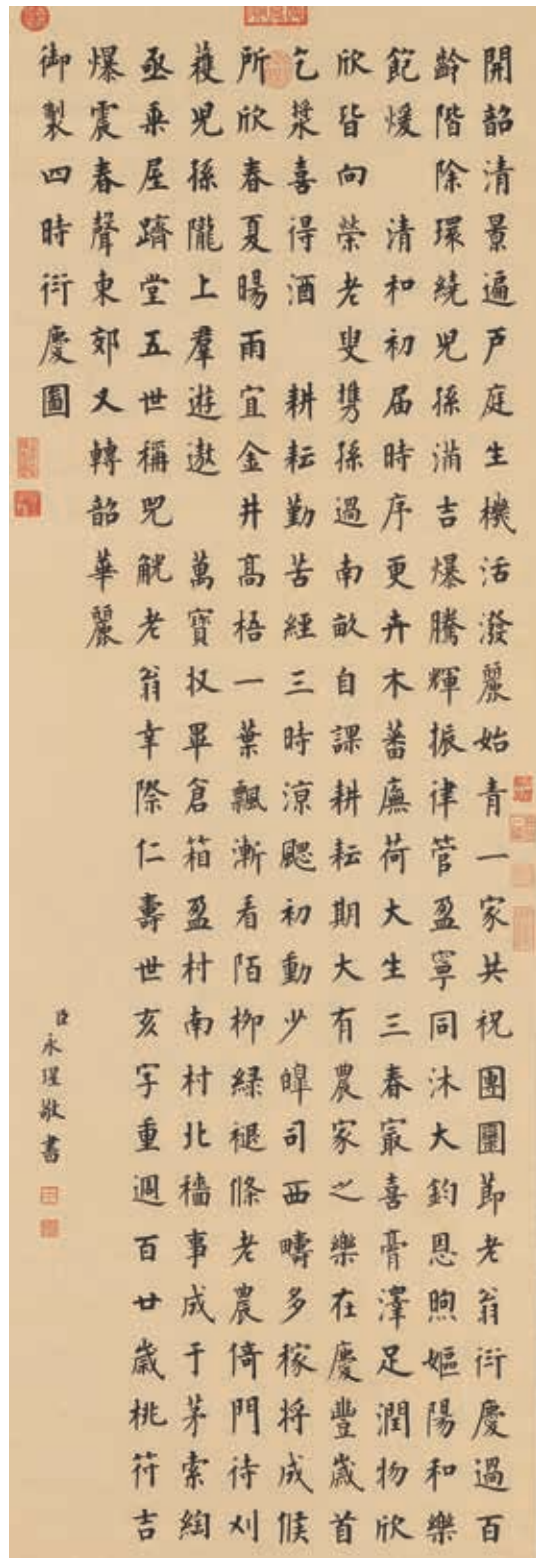 開韶清景遍戶庭生機活潑麗始青一家共祝團圞節老翁衍慶過百
齡階除環繞兒孫滿吉爆騰輝振律管盈寧同沐大鈞恩煦嫗陽和樂
飽煖 清和初屆時序更卉木蕃廡荷大生三春㝡喜膏澤足潤物欣
欣皆向榮老叟攜孫過南畝自課耕耘期大有農家之樂在慶豐歲首
乞漿喜得酒 耕耘勤苦經三時涼颸初動少皞司西疇多稼將成候
所欣春夏暘雨宜金井高梧一葉飄漸看陌柳綠褪條老農倚門待刈
穫兒孫隴上羣遊遨 萬寶收畢倉箱盈村南村北穡事成于茅索綯
亟乘屋躋堂五世稱兕觥老翁幸際仁壽世亥字重週百廿歲桃符吉
爆震春聲東郊又轉韶華麗
御製四時衍慶圖
臣永瑆敬書